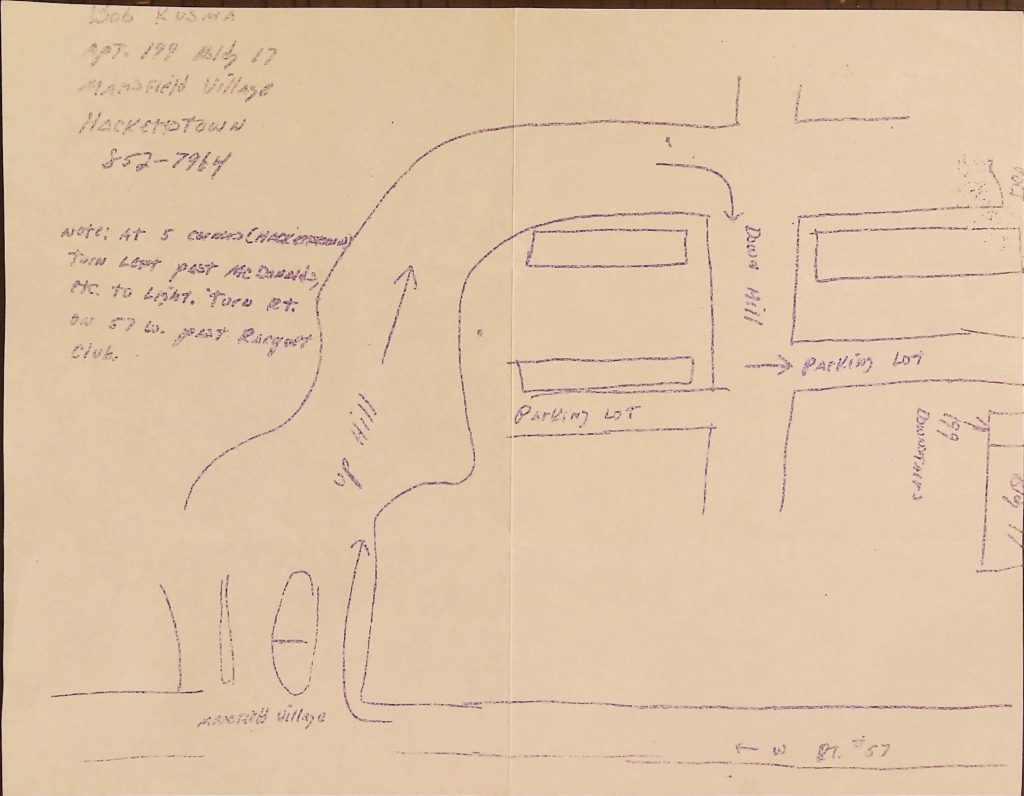 Bob Kusma
Apt. 199 Bldg 17
Mansfield Village
Hackettstown
852-7964
Note: At 5 corners (Hackettstown)
Turn Left past McDonalds,
etc. to Light. Turn Rt.
on 57 W. past Racquet
Club.
Down Hill
Parking Lot
Up Hill
Parking Lot
199
Downstairs
Bldg 17
Mansfield Village
← W Rt. #57